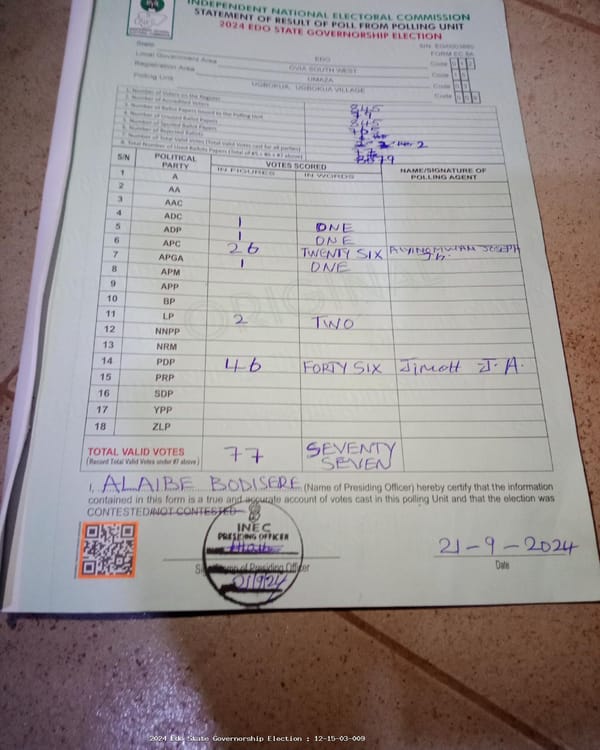 INDEPENDENT NATIONAL ELECTORAL COMMISSION
STATEMENT OF RESULT OF POLL FROM POLLING UNIT
2024 EDO STATE GOVERNORSHIP ELECTION
FORM EC 8A
State EDO Code
Local Government Area OVIA SOUTH WEST Code
Registration Area UMAZA Code
Polling Unit UGBOKUA, UGBOKUA VILLAGE Code
1. Number of Voters on the Register 845
2. Number of Accredited Voters
3. Number of Ballot Papers Issued to the Polling Unit 845
4. Number of Unused Ballot Papers
5. Number of Spoiled Ballot Papers
6. Number of Rejected Ballots 2
7. Number of Total Valid Votes (Total Valid Votes cast for all parties)
8. Total Number of Used Ballot Papers (Total of #5 + #6 + #7 above) 79
S/N POLITICAL PARTY VOTES SCORED NAME/SIGNATURE OF POLLING AGENT
IN FIGURES IN WORDS
1 A
2 AA
3 AAC
4 ADC 1 ONE
5 ADP 1 ONE
6 APC 26 TWENTY SIX JOSEPH
7 APGA 1 ONE
8 APM
9 APP
10 BP
11 LP 2 TWO
12 NNPP
13 NRM
14 PDP 46 FORTY SIX Jimoh J. A.
15 PRP
16 SDP
17 YPP
18 ZLP
TOTAL VALID VOTES 77 SEVENTY SEVEN
(Record Total Valid Votes under #7 above)
I, ALAIBE BODISERE (Name of Presiding Officer) hereby certify that the information
contained in this form is a true and accurate account of votes cast in this polling Unit and that the election was
CONTESTED/NOT CONTESTED
INEC
PRESIDING OFFICER
21-9-2024
Signature of Presiding Officer Date
21/9/24
2024 Edo State Governorship Election : 12-15-03-009